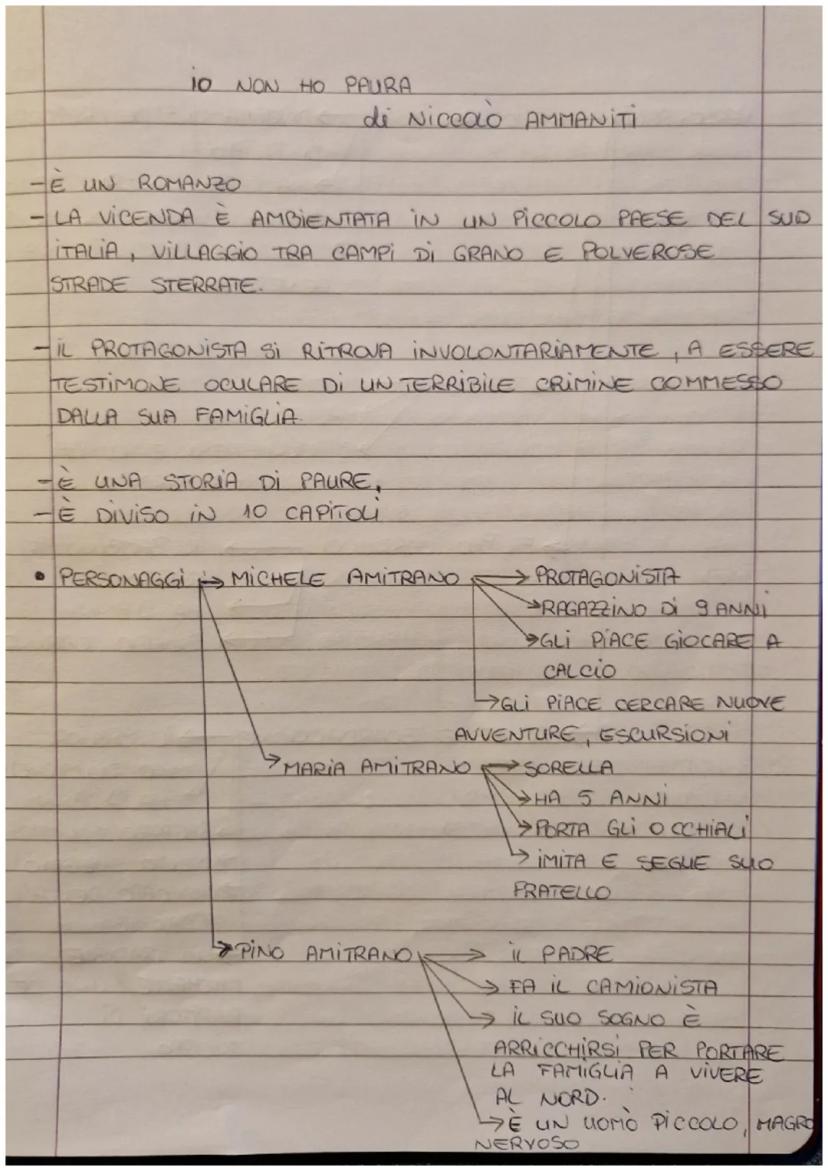 io NON HO PAURA
di Niccolò AMMANiTi
- È UN ROMANZO
- LA ViCENDA È AMBiENTATA iN UN PiCCOLO PAESE DEL SUD
iTALiA, ViLLAGGiO TRA CAMPi Di GRANO E POLVEROSE
STRADE STERRATE.
- iL PROTAGONiSTA Si RiTROVA iNVOLONTARiAMENTE, A ESSERE
TESTiMONE OCULARE Di UN TERRiBiLE CRiMiNE COMMESSO
DALLA SUA FAMiGLiA.
- È UNA STORiA Di PAURE,
- È DiViSO iN 10 CAPiTOLi
• PERSONAGGi → MiCHELE AMiTRANO → PROTAGONiSTA
→ RAGAZZiNO Di 9 ANNi
→ GLi PiACE GiOCARE A
CALCiO
→ GLi PiACE CERCARE NUOVE
AVVENTURE, ESCURSiONi
→ MARiA AMiTRANO → SORELLA
→ HA 5 ANNi
→ PORTA GLi OCCHiALi
→ iMiTA E SEGUE SUO
FRATELLO
→ PiNO AMiTRANO → iL PADRE
→ FA iL CAMiONiSTA
→ iL SUO SOGNO È
ARRiCCHiRSi PER PORTARE
LA FAMiGLiA A ViVERE
AL NORD.
→ È UN UOMO PiCCOLO, MAGRO
NERVOSO